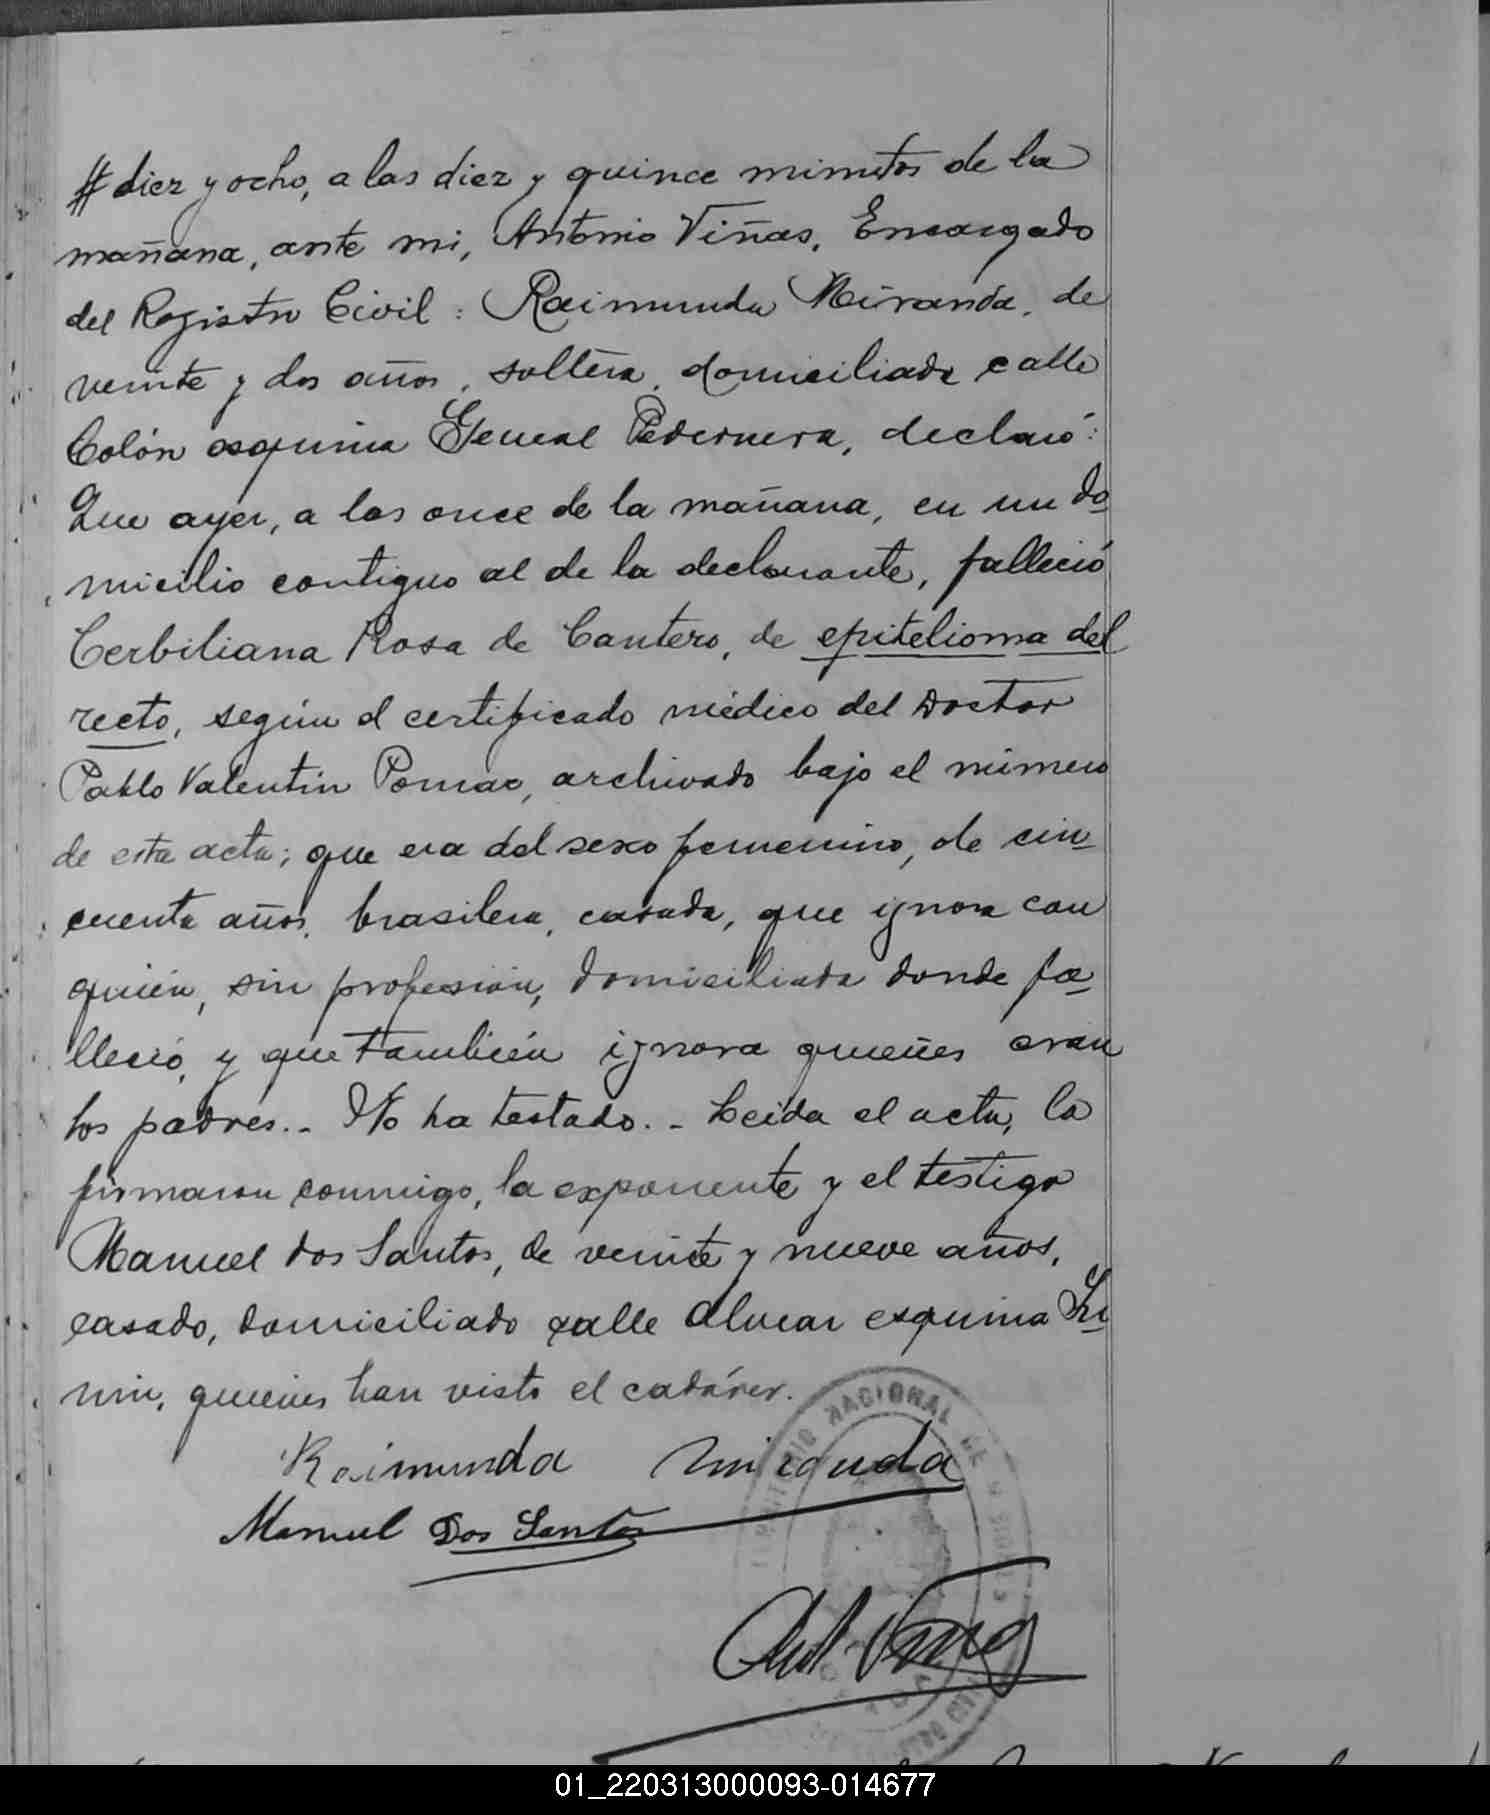 # diez y ocho, a las diez y quince minutos de la
mañana, ante mi, Antonio Viñas, Encargado
del Registro Civil: Raimunda Miranda, de
veinte y dos años, soltera, domiciliada calle
Colón esquina General Pedernera, declaró:
Que ayer, a las once de la mañana, en un do
micilio contiguo al de la declarante, falleció
Cerbiliana Rosa de Cantero, de epitelioma del
recto, según el certificado médico del Doctor
Pablo Valentin Pomar, archivado bajo el número
de esta acta; que era del sexo femenino, de cin-
cuenta años, brasilera, casada, que ignora con
quién, sin profesión, domiciliada donde fa-
lleció, y que también ignora quienes eran
los padres.- No ha testado.- Leida el acta, la
firmaron conmigo, la exponente y el testigo
Manuel dos Santos, de veinte y nueve años,
casado, domiciliado calle Alvear esquina Ju
nin, quienes han visto el cadáver.
Raimunda Miranda
Manuel Dos Santos
Ant. Viñas
NACIONAL DE
01_220313000093-014677